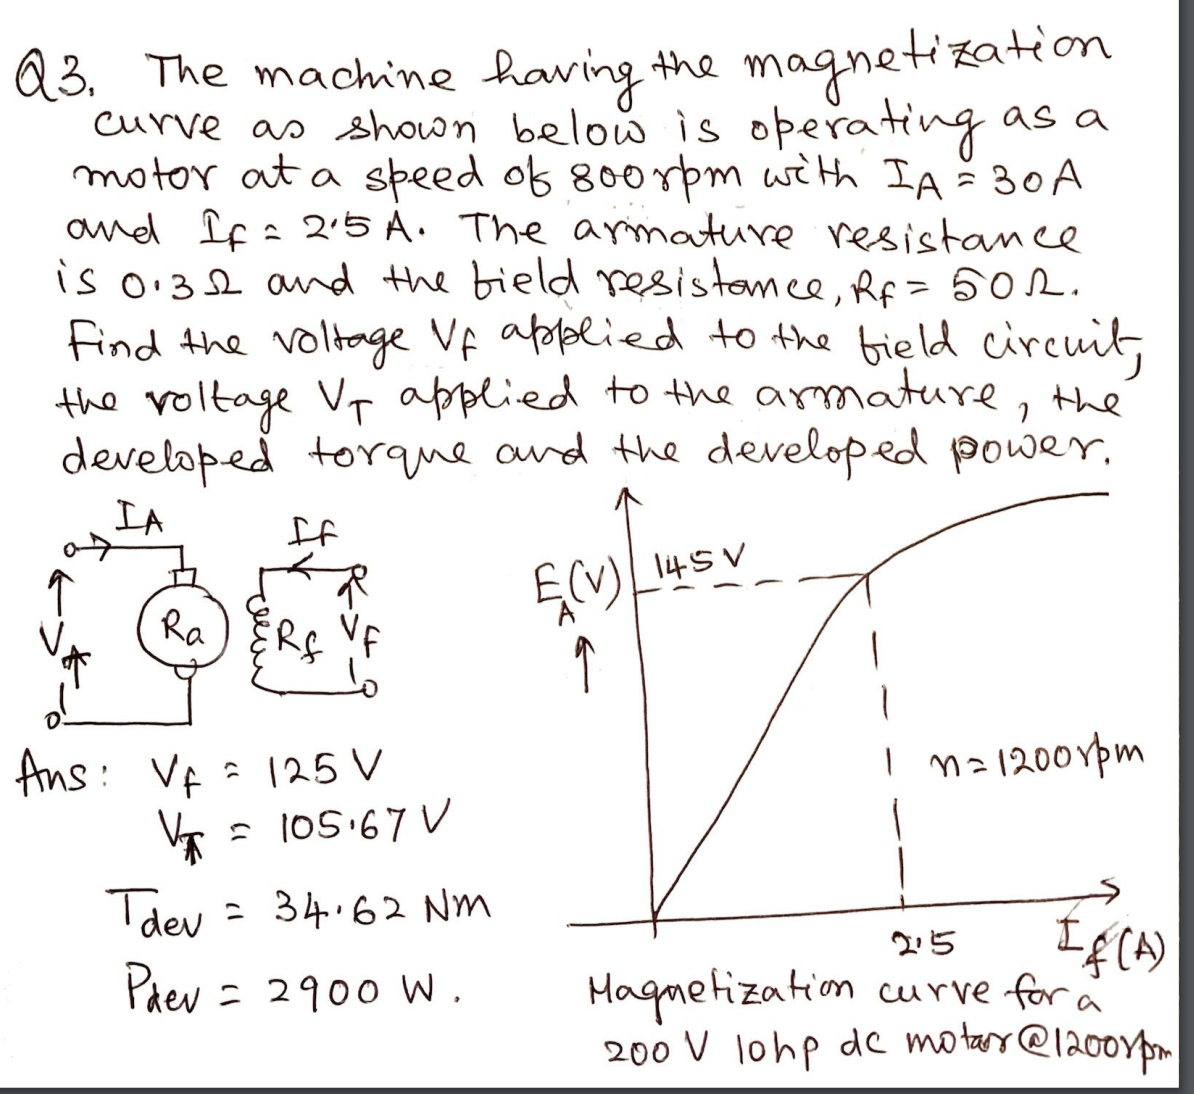 Q3. The machine having the magnetization
curve as shown below is operating as a
motor at a speed of 800 rpm with IA = 30A
and If = 2.5 A. The armature resistance
is 0.3Ω and the field resistance, Rf = 50Ω.
Find the voltage Vf applied to the field circuit,
the voltage VT applied to the armature, the
developed torque and the developed power.
IA
If
VT
Ra
Rf
VF
EA(V)
145 V
n = 1200rpm
2.5
If(A)
Magnetization curve for a
200 V 10hp dc motor @1200rpm
Ans: Vf = 125 V
VT = 105.67 V
Tdev = 34.62 Nm
Pdev = 2900 W.